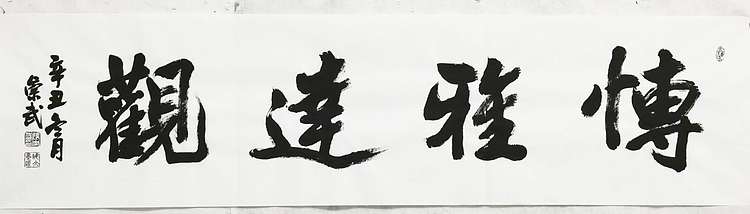 愽雅達觀
辛丑冬月
崇武